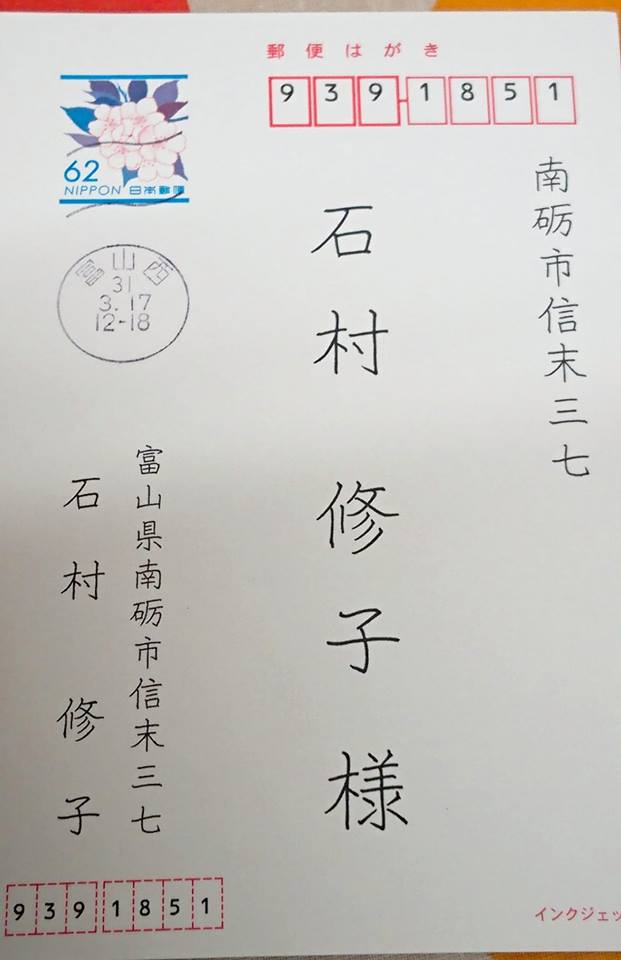 郵便はがき
939-1851
南砺市信末三七
石村 修子様
62
NIPPON 日本郵便
富山西
31
3.17
12-18
富山県南砺市信末三七
石村 修子
9391851
インクジェッ